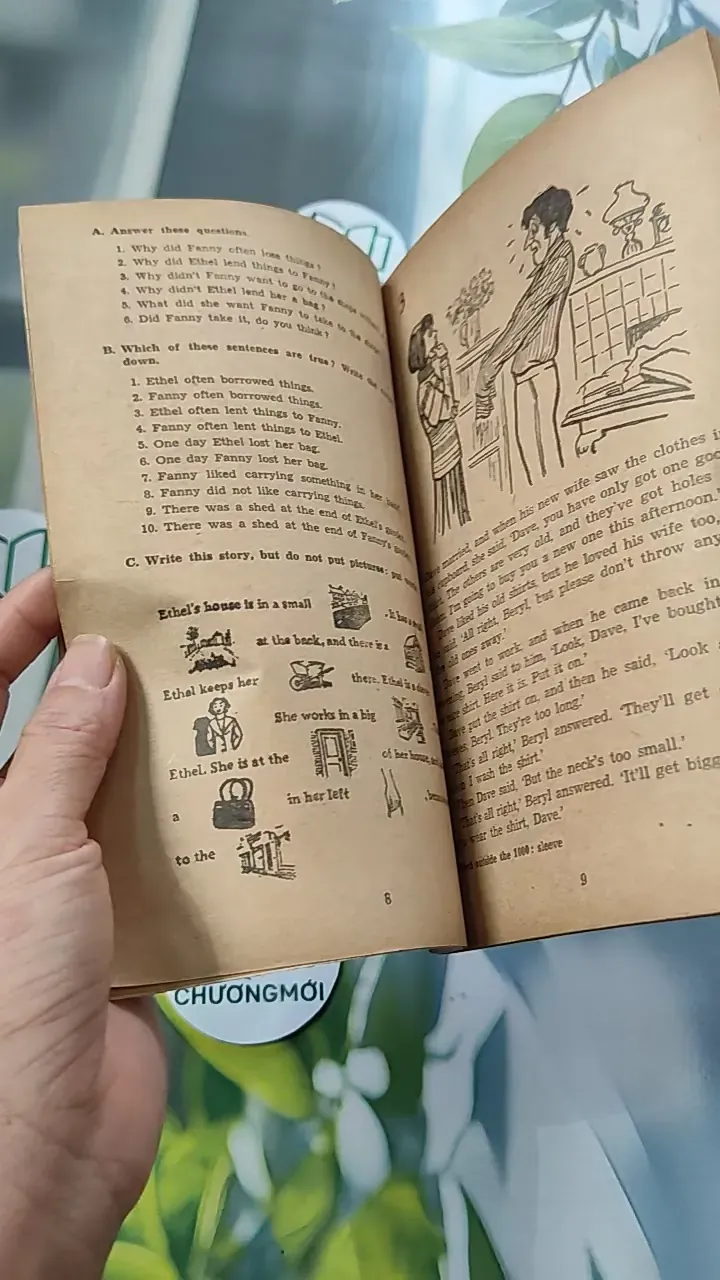 A. Answer these questions.
1. Why did Fanny often lose things?
2. Why did Ethel lend things to Fanny?
3. Why didn't Fanny want to go to the shops
4. Why didn't Ethel lend her a bag?
5. What did she want Fanny to take to the
6. Did Fanny take it, do you think?
B. Which of these sentences are true? Write the
down.
1. Ethel often borrowed things.
2. Fanny often borrowed things.
3. Ethel often lent things to Fanny.
4. Fanny often lent things to Ethel.
5. One day Ethel lost her bag.
6. One day Fanny lost her bag.
7. Fanny liked carrying something in her hand.
8. Fanny did not like carrying things.
9. There was a shed at the end of Ethel's garden.
10. There was a shed at the end of Fanny's garden.
C. Write this story, but do not put pictures: put
Ethel's house is in a small . It has a
at the back, and there is a
Ethel keeps her there. Ethel is a
She works in a big
Ethel. She is at the of her house,
a in her left
to the
8
3
married, and when his new wife saw the clothes
cupboard, she said, 'Dave, you have only got one
The others are very old, and they've got holes
I'm going to buy you a new one this afternoon.'
Dave liked his old shirts, but he loved his wife too,
said, 'All right, Beryl, but please don't throw any
old ones away.'
Dave went to work, and when he came back
Beryl said to him, 'Look, Dave, I've bought
shirt. Here it is. Put it on.'
Dave put the shirt on, and then he said, 'Look
Beryl. They're too long.'
'That's all right,' Beryl answered. 'They'll get
I wash the shirt.'
Then Dave said, 'But the neck's too small.'
'That's all right,' Beryl answered. 'It'll get
wear the shirt, Dave.'
outside the 1000: sleeve
9
CHƯƠNGMỚI